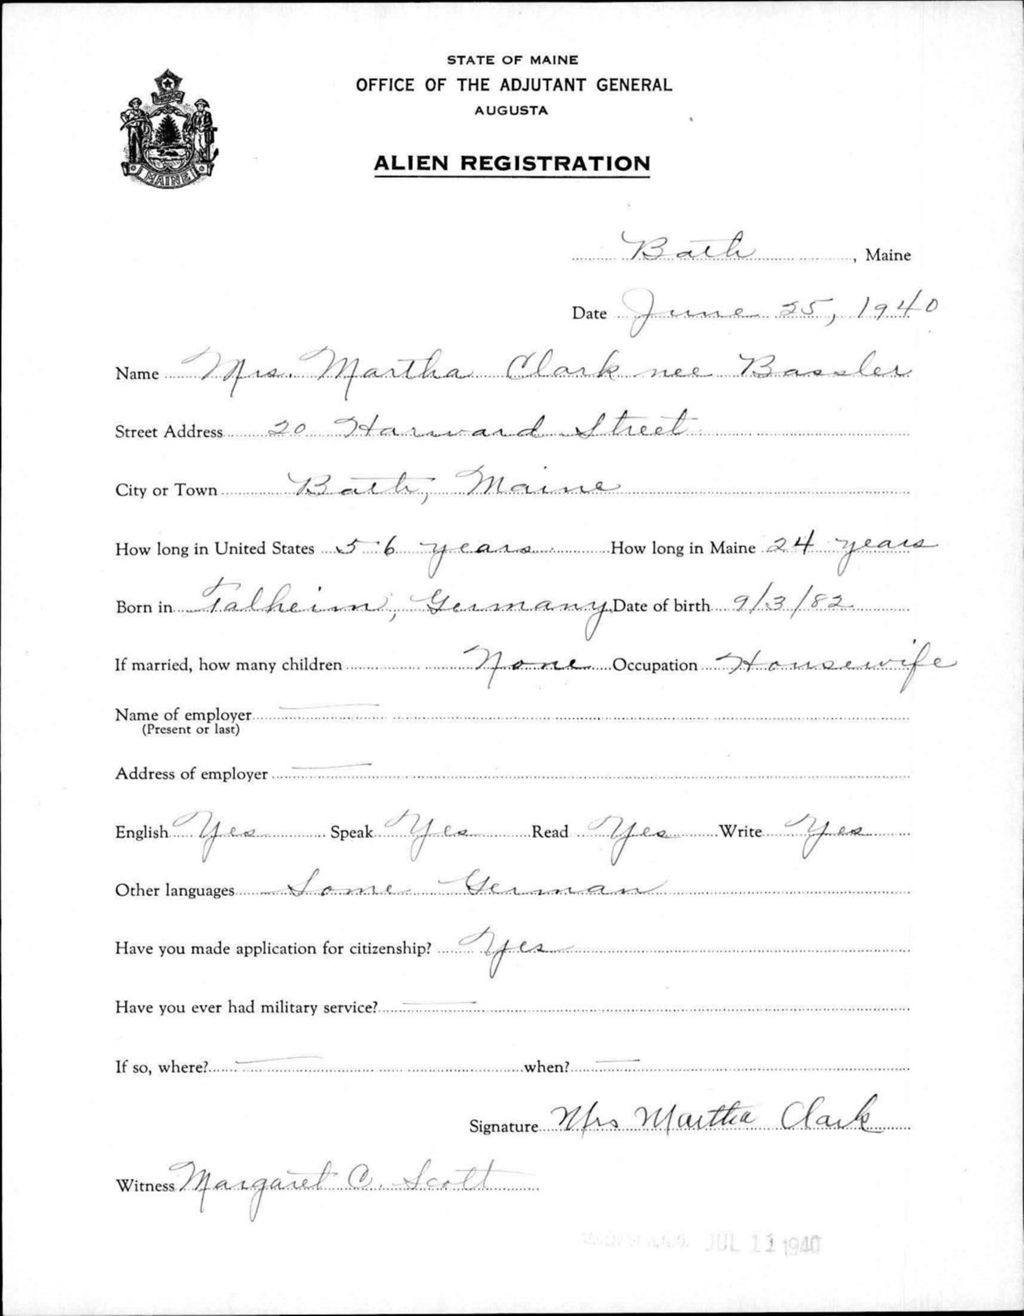 STATE OF MAINE
OFFICE OF THE ADJUTANT GENERAL
AUGUSTA
ALIEN REGISTRATION
MAINE
Bath, Maine
Date June 25, 1940
Name Mrs. Martha Clark nee Bassler
Street Address 20 Harward Street
City or Town Bath, Maine
How long in United States 56 years How long in Maine 24 years
Born in Talheim, Germany Date of birth 9/3/82
If married, how many children None Occupation Housewife
Name of employer
(Present or last)
Address of employer
English Yes Speak Yes Read Yes Write Yes
Other languages Some German
Have you made application for citizenship? Yes
Have you ever had military service?
If so, where? when?
Signature Mrs Martha Clark
Witness Margaret C. Scott
JUL 11 1940